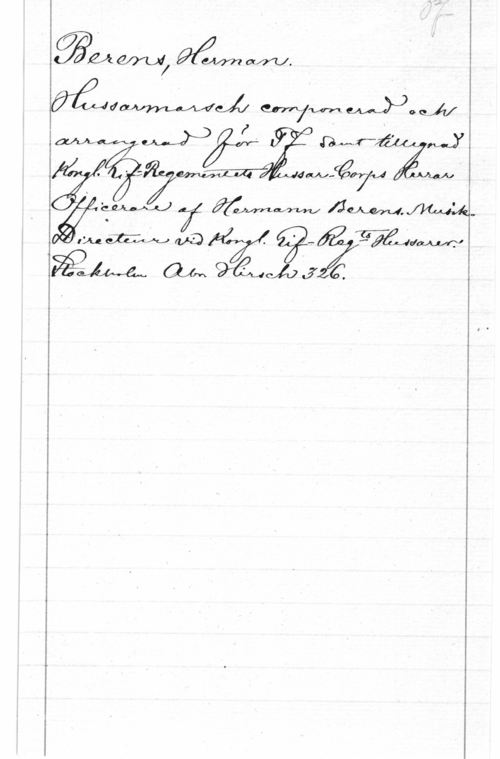 Berens, Herman.
Hussarmarsch componerad och
arrangerad för samt tillegnad
Kongl. Lif-Regementets Hussar-Corps Herrar
Officerare af Hermann Berens. Musik-
Directeur vid Kongl. Lif-Regts Hussarer.
Stockholm Abr. Hirsch 326.